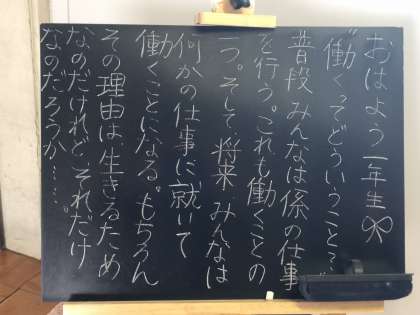 おはよう一年生
"働く"ってどういうこと?
普段みんなは係の仕事
を行う。これも働くことの
一つ。そして、将来みんなは
何かの仕事に就いて
働くことになる。もちろん
その理由は生きるため
なのだけれど、それだけ
なのだろうか……。